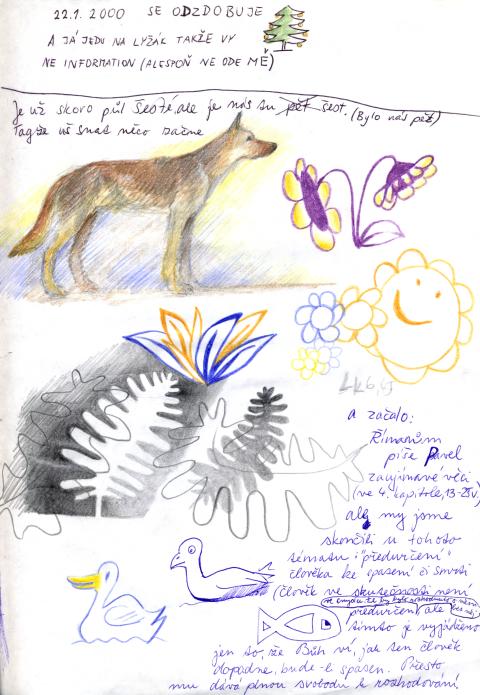 22.1. 2000 SE ODZDOBUJE
A JÁ JEDU NA LYŽÁK TAKŽE VY
NE INFORMATION (ALESPOŇ NE ODE MĚ)
Je už skoro půl šesté, ale je nás tu pět šest. (Bylo nás pět)
Tagže už snad něco začne
a začalo:
Římanům
píše Pavel
zaujímavé věci
(ve 4. kapitole, 13-25v.)
ale my jsme
skončili u tohoto
tématu: "předurčení"
člověka ke spasení či smrti
(člověk ve skutečnosti není
předurčen, ale
tímto je vyjádřeno
jen to, že Bůh ví, jak ten člověk
dopadne, bude-li spasen. Přesto
mu dává plnou svobodu k rozhodování